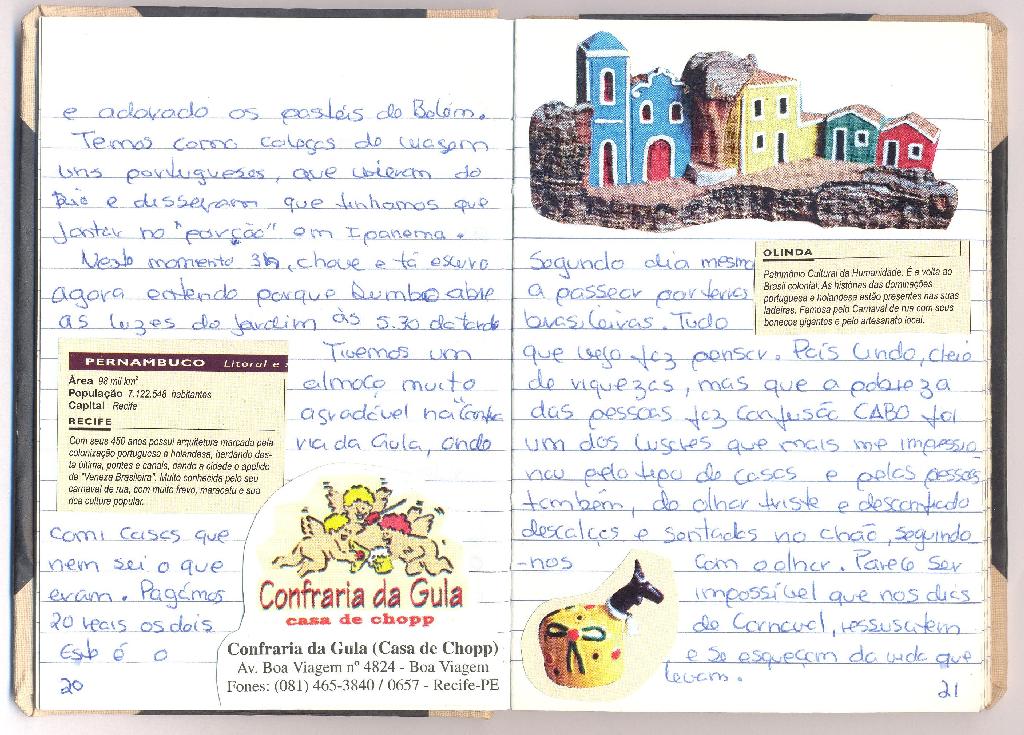 e adorado os pastéis de Belém.
Temos como colegas de viagem
uns portugueses, que vieram do
Rio e disseram que tinhamos que
jantar no "porção" em Ipanema.
Neste momento 3h, chove e tá escuro
agora entendo porque Dumbo abre
as luzes do jardim às 5.30 da tarde
Tivemos um
almoço muito
agradável na "Confra
ria da Gula, onde
comi coisas que
nem sei o que
eram. Pagámos
20 reais os dois
Este é o
20
PERNAMBUCO Litoral e
Área 98 mil km²
População 7.122.548 habitantes
Capital Recife
RECIFE
Com seus 450 anos possui arquitetura marcada pela
colonização portuguesa e holandesa, herdando des-
ta última, pontes e canais, dando a cidade o apelido
de "Veneza Brasileira". Muito conhecida pelo seu
carnaval de rua, com muito frevo, maracatu e sua
rica culture popular.
Confraria da Gula
casa de chopp
Confraria da Gula (Casa de Chopp)
Av. Boa Viagem nº 4824 - Boa Viagem
Fones: (081) 465-3840 / 0657 - Recife-PE
OLINDA
Patrimônio Cultural da Humanidade. É a volta ao
Brasil colonial. As histórias das dominações
portuguesa e holandesa estão presentes nas suas
ladeiras. Famosa pelo Carnaval de rua com seus
bonecos gigantes e pelo artesanato local.
Segundo dia mesmo
a passear por terras
brasileiras. Tudo
que vejo faz pensar. País lindo, cheio
de riquezas, mas que a pobreza
das pessoas faz confusão CABO foi
um dos lugares que mais me impressio
nou pelo tipo de casas e pelas pessoas
também, de olhar triste e desconfiado
descalças e sentados no chão, seguindo
-nos com o olhar. Parece ser
impossível que nos dias
de Carnaval, ressuscitem
e se esqueçam da vida que
levam.
21